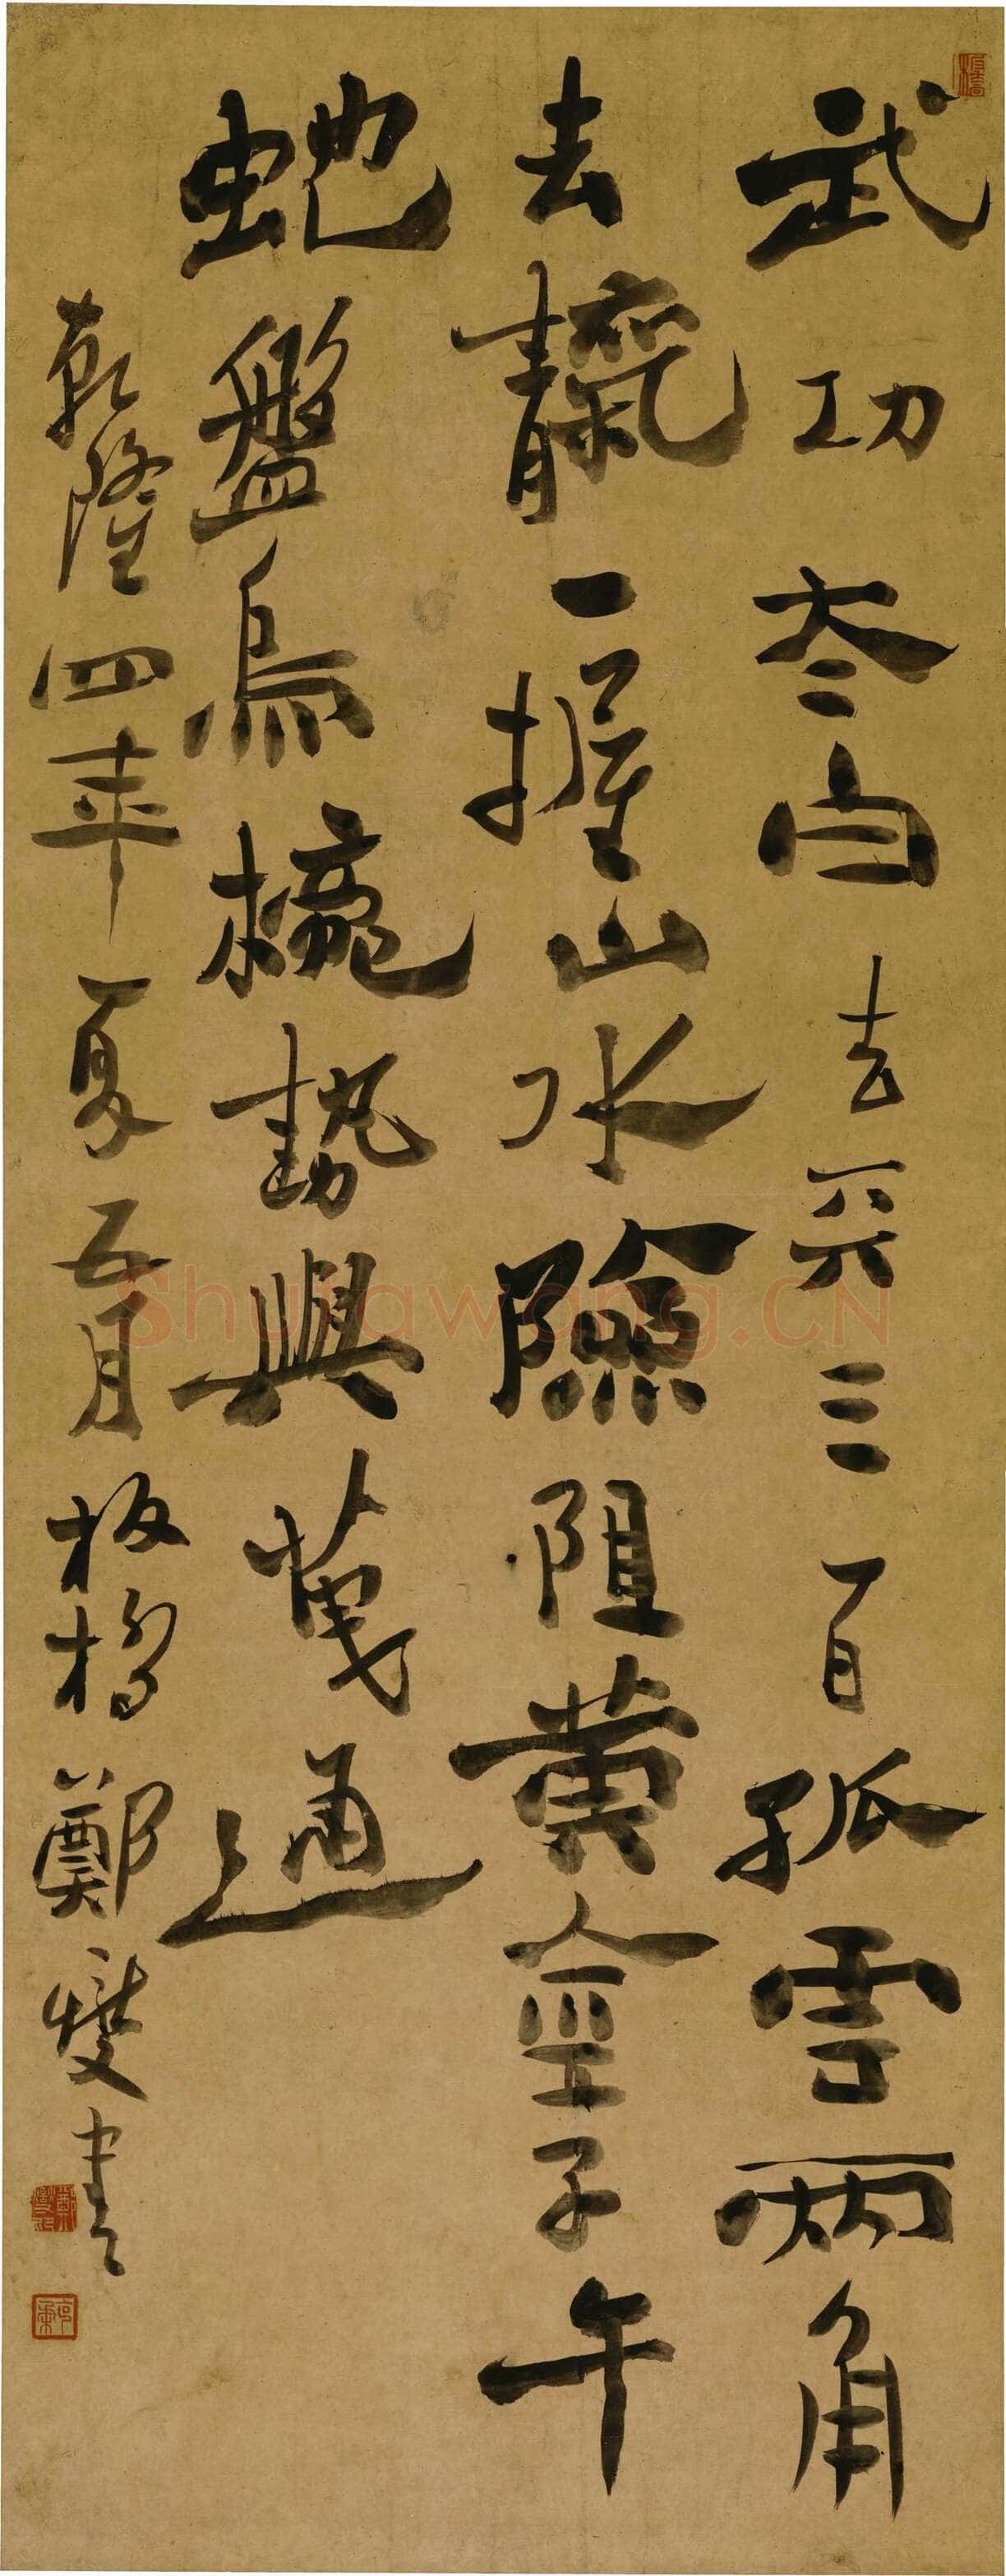 武功夳白去天三百孤雲兩角
去靝一握山水險阻黃金子午
蛇盤烏櫳勢與天通
乾隆四年夏五月板橋鄭燮書
Shufawang.CN